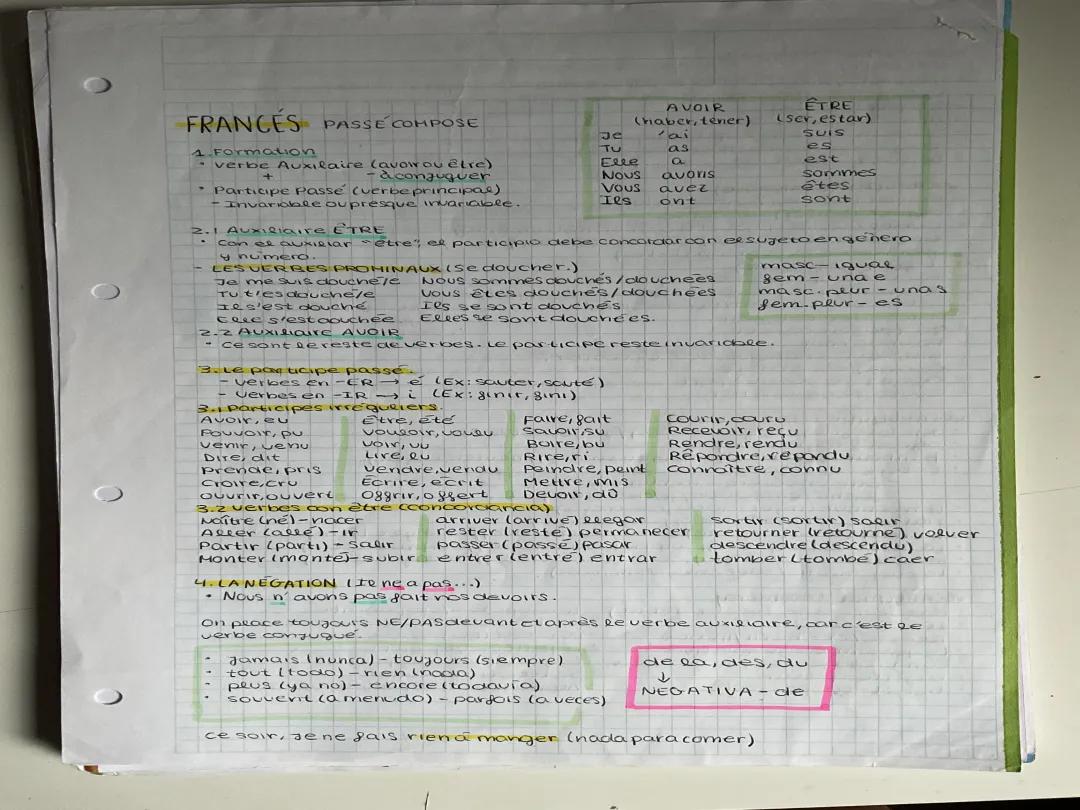 FRANCÉS PASSÉ COMPOSE
AVOIR ÊTRE
(haber, tener) (ser, estar)
Je 'ai suis
Tu as es
Elle a est
Nous avons sommes
Vous avez êtes
Ils ont sont
1. Formation
• Verbe Auxiliaire (avoir ou être)
+ - à conjuguer
• Participe Passé (verbe principal)
- Invariable ou presque invariable.
2.1 Auxiliaire ÊTRE
• Con el auxiliar "être", el participio debe concordar con el sujeto en género
y número.
- LES VERBES PROMINAUX (Se doucher.)
Je me suis douché/e Nous sommes douchés/douchées
Tu t'es douché/e Vous êtes douchés/douchées
Il s'est douché Ils se sont douchés
Elle s'est douchée Elles se sont douchées.
masc - igual
fem - una e
masc. plur - una s
fem. plur - es
2.2 Auxiliaire AVOIR
• Ce sont le reste de verbes. Le participe reste invariable.
3. Le participe passé.
- Verbes en -ER → é (Ex: sauter, sauté)
- Verbes en -IR → i (Ex: finir, fini)
3.1 Participes irréguliers.
Avoir, eu Être, été Faire, fait Courir, couru
Pouvoir, pu Vouloir, voulu Savoir, su Recevoir, reçu
Venir, venu Voir, vu Boire, bu Rendre, rendu
Dire, dit Lire, lu Rire, ri Répondre, répondu
Prende, pris Vendre, vendu Peindre, peint Connaître, connu
Croire, cru Écrire, écrit Mettre, mis
Ouvrir, ouvert Offrir, offert Devoir, dû
3.2 Verbes con être (concordancia)
Naître (né) - nacer arriver (arrivé) llegar sortir (sortir) salir
Aller (allé) - ir rester (resté) permanecer retourner (retourné) volver
Partir (parti) - salir passer (passé) pasar descendre (descendu)
Monter (monté) - subir entrer (entré) entrar tomber (tombé) caer
4. LA NÉGATION (Je ne a pas...)
• Nous n'avons pas fait nos devoirs.
On place toujours NE/PAS devant et après le verbe auxiliaire, car c'est le
verbe conjugué.
• Jamais (nunca) - toujours (siempre)
• tout (todo) - rien (nada)
• plus (ya no) - encore (todavía)
• souvent (a menudo) - parfois (a veces)
de la, des, du
↓
NEGATIVA - de
Ce soir, Je ne fais rien à manger (nada para comer)